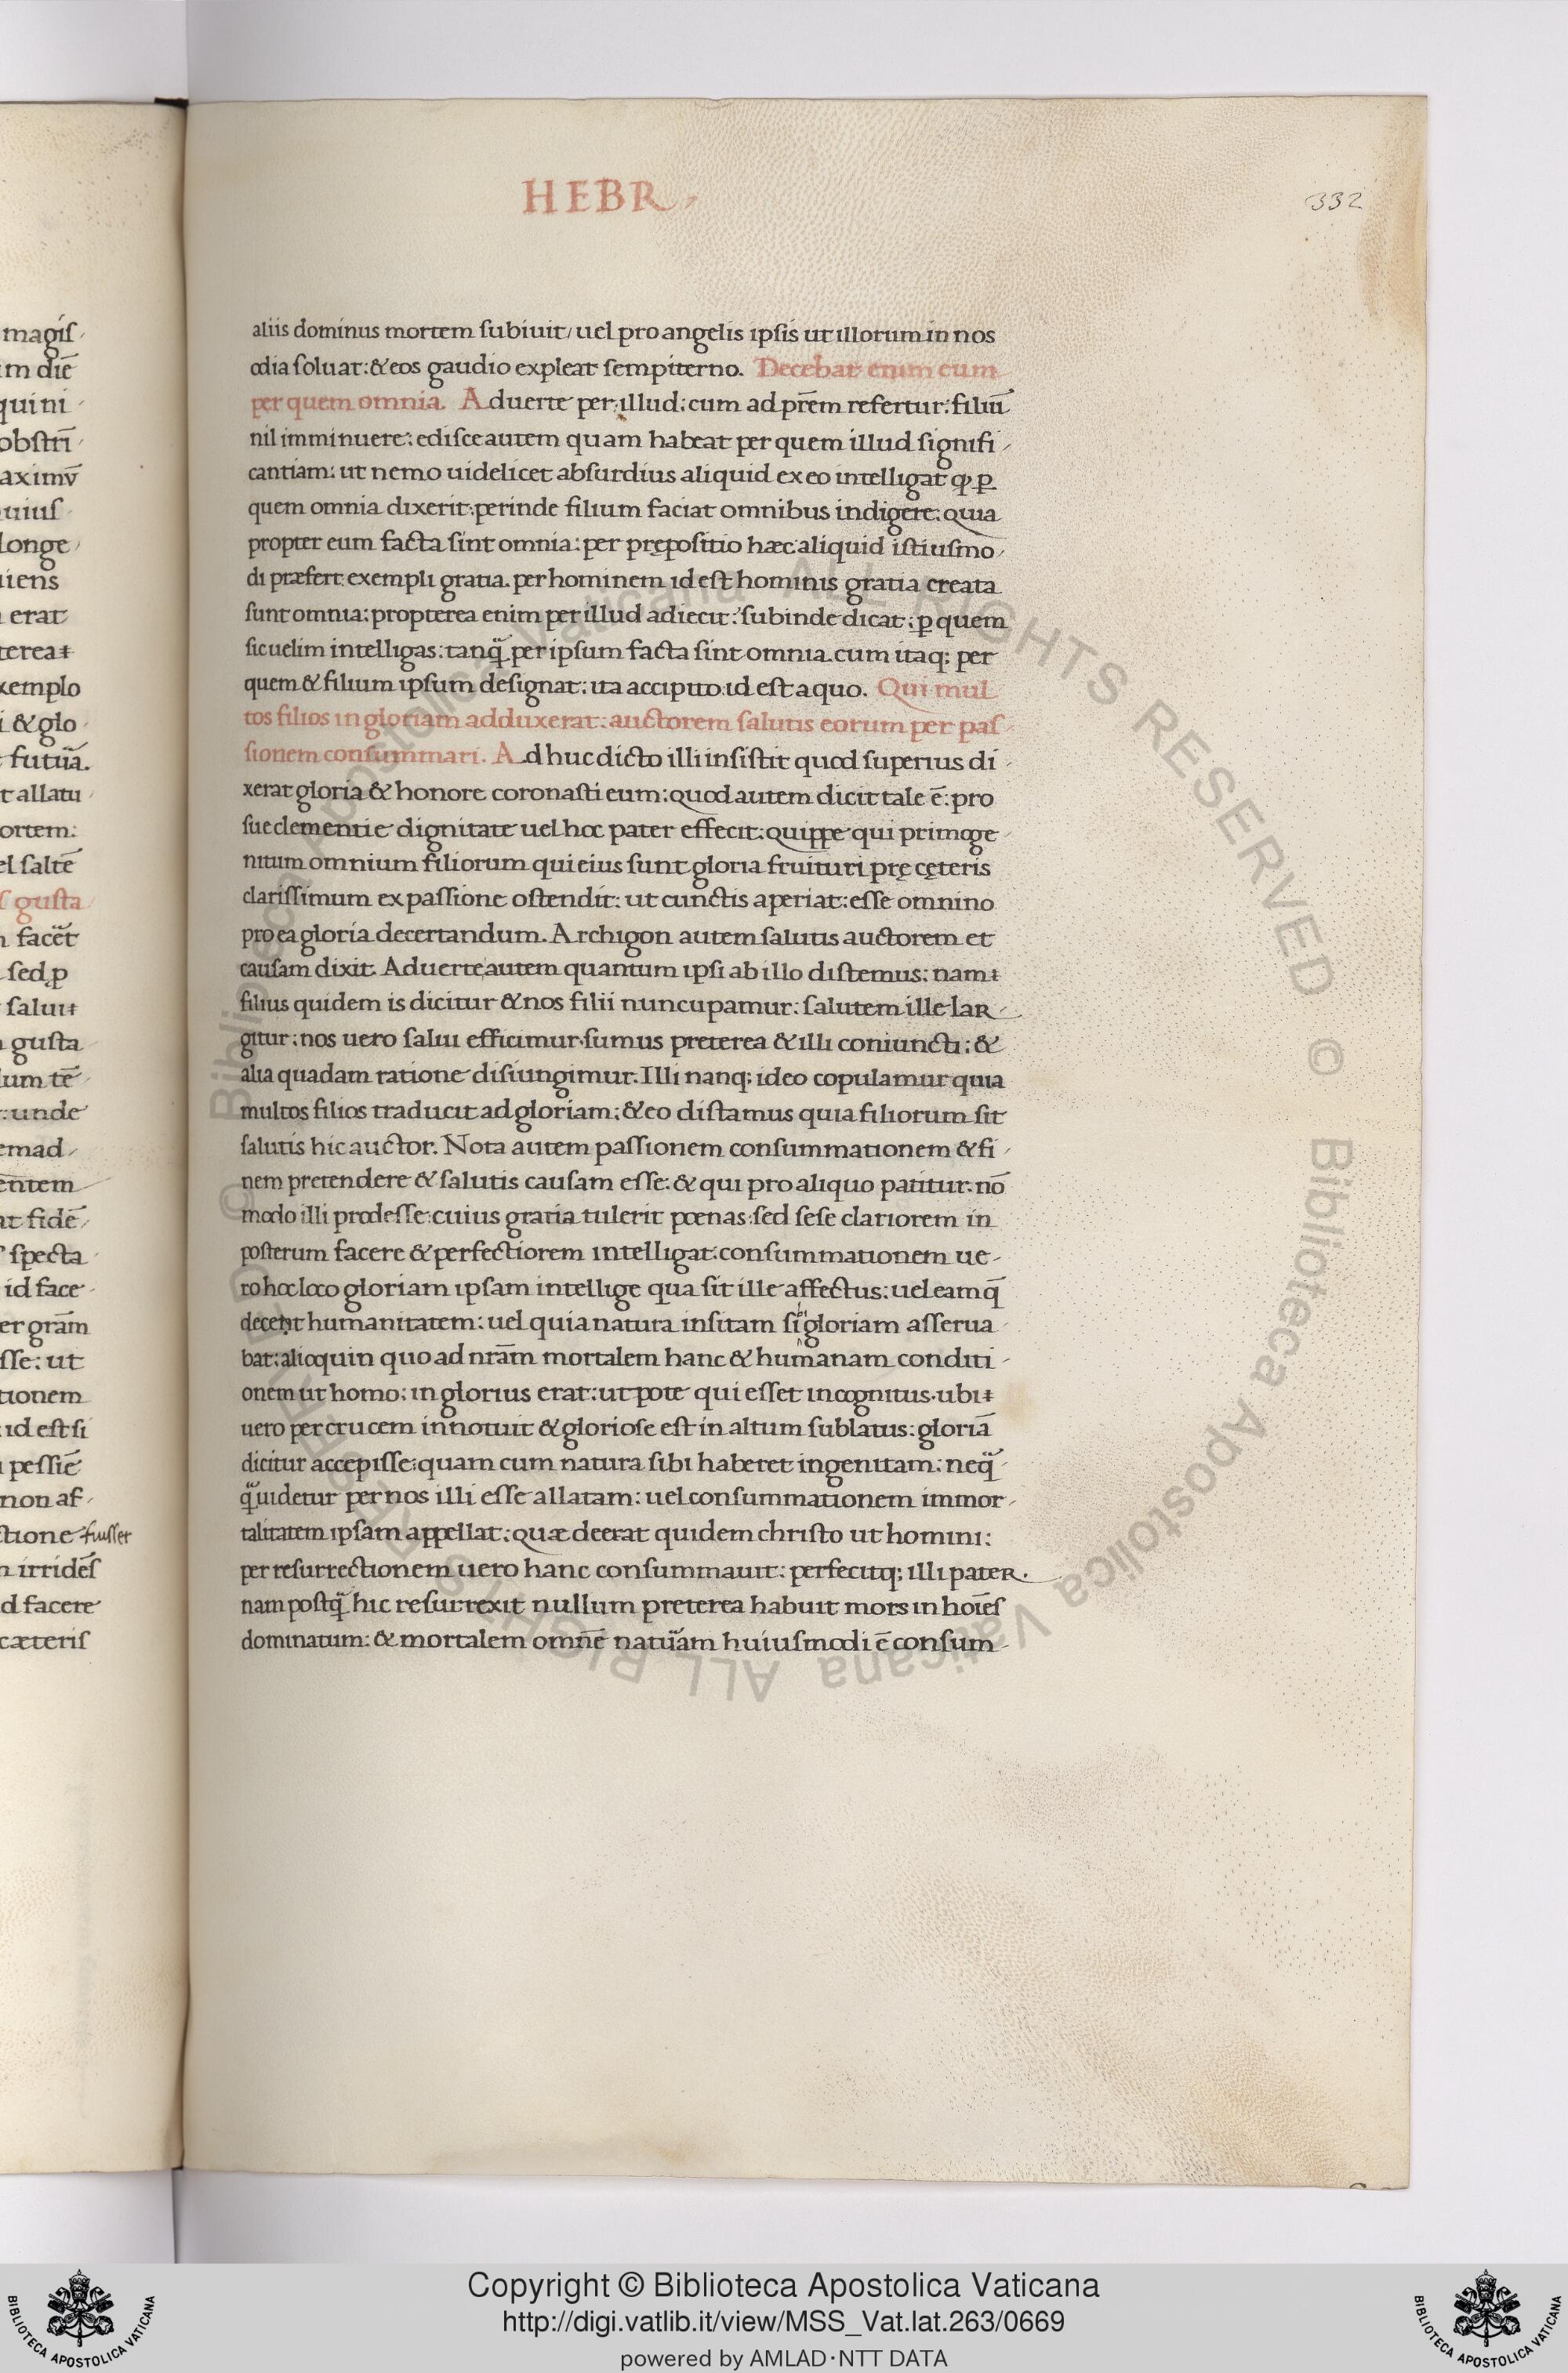 HEBR
332
aliis dominus mortem subiuit/ uel pro angelis ipsis ut illorum in nos
odia soluat: & eos gaudio expleat sempiterno. Decebat enim eum
per quem omnia. Aduerte per illud: cum ad pr̄em refertur: filiū
nil imminuere: edisce autem quam habeat per quem illud signifi-
cantiam: ut nemo uidelicet absurdius aliquid ex eo intelligat ꝙ ꝑ
quem omnia dixerit: perinde filium faciat omnibus indigere: quia
propter eum facta sint omnia: per prępositio hæc aliquid istiusmo-
di præfert: exempli gratia. per hominem id est hominis gratia creata
sunt omnia: propterea enim per illud adiecit: subinde dicat: ꝑ quem
sic uelim intelligas: tanq̈ per ipsum facta sint omnia. cum itaq; per
quem & filium ipsum designat: ita accipito: id est a quo. Qui mul
tos filios in gloriam adduxerat: auctorem salutis eorum per pas-
sionem consummari. Ad huc dicto illi insistit quod superius di-
xerat gloria & honore coronasti eum: quod autem dicit tale ē: pro
sue clementie dignitate uel hoc pater effecit: quippe qui primoge-
nitum omnium filiorum qui eius sunt gloria fruituri prę cęteris
clarissimum ex passione ostendit: ut cunctis aperiat: esse omnino
pro ea gloria decertandum. Archigon autem salutis auctorem et
causam dixit. Aduerte autem quantum ipsi ab illo distemus: nam
filius quidem is dicitur & nos filii nuncupamur: salutem ille lar-
gitur: nos uero salui efficimur. sumus preterea & illi coniuncti: &
alia quadam ratione disiungimur. Illi nanq; ideo copulamur quia
multos filios traducit ad gloriam: & eo distamus quia filiorum sit
salutis hic auctor. Nota autem passionem consummationem & fi-
nem pretendere & salutis causam esse: & qui pro aliquo patitur: nō
modo illi prodesse: cuius gratia tulerit poenas: sed sese clariorem in
posterum facere & perfectiorem intelligat: consummationem ue-
ro hoc loco gloriam ipsam intellige qua sit ille affectus: uel eam q̄
decent humanitatem: uel quia natura insitam gloriam asserua-
bat: alioquin quo ad nr̄am mortalem hanc & humanam conditi-
onem ut homo: in glorius erat: ut pote qui esset incognitus. ubi
uero per crucem innotuit & gloriose est in altum sublatus: gloriā
dicitur accepisse: quam cum natura sibi haberet ingenitam: neq̈-
q̈ uidetur per nos illi esse allatam: uel consummationem immor-
talitatem ipsam appellat: quæ deerat quidem christo ut homini:
per resurrectionem uero hanc consummauit: perfecitq; illi pater.
nam postq̈ hic resurrexit nullum preterea habuit mors in hoīes
dominatum: & mortalem omnē natüam huiusmodi ē consum-
magis-
m diē
quini
obstri-
aximū
uius
longe
iens
erat
terea
xemplo
i & glo-
futüa.
t allatu-
ortem:
el saltē
gusta
facët
sed ꝑ
salui
gusta
lum tē
: unde
emad-
entem
at fidē
specta-
id face-
er grām
sse: ut
tionem
id est si
pessiē
non af-
tione fuisset
irridēs
d facere
cæteris
© Biblioteca Apostolica Vaticana ALL RIGHTS RESERVED © Biblioteca Apostolica Vaticana ALL RIGHTS RESERVED
Copyright © Biblioteca Apostolica Vaticana
http://digi.vatlib.it/view/MSS_Vat.lat.263/0669
powered by AMLAD·NTT DATA
BIBLIOTECA APOSTOLICA VATICANA
BIBLIOTECA APOSTOLICA VATICANA